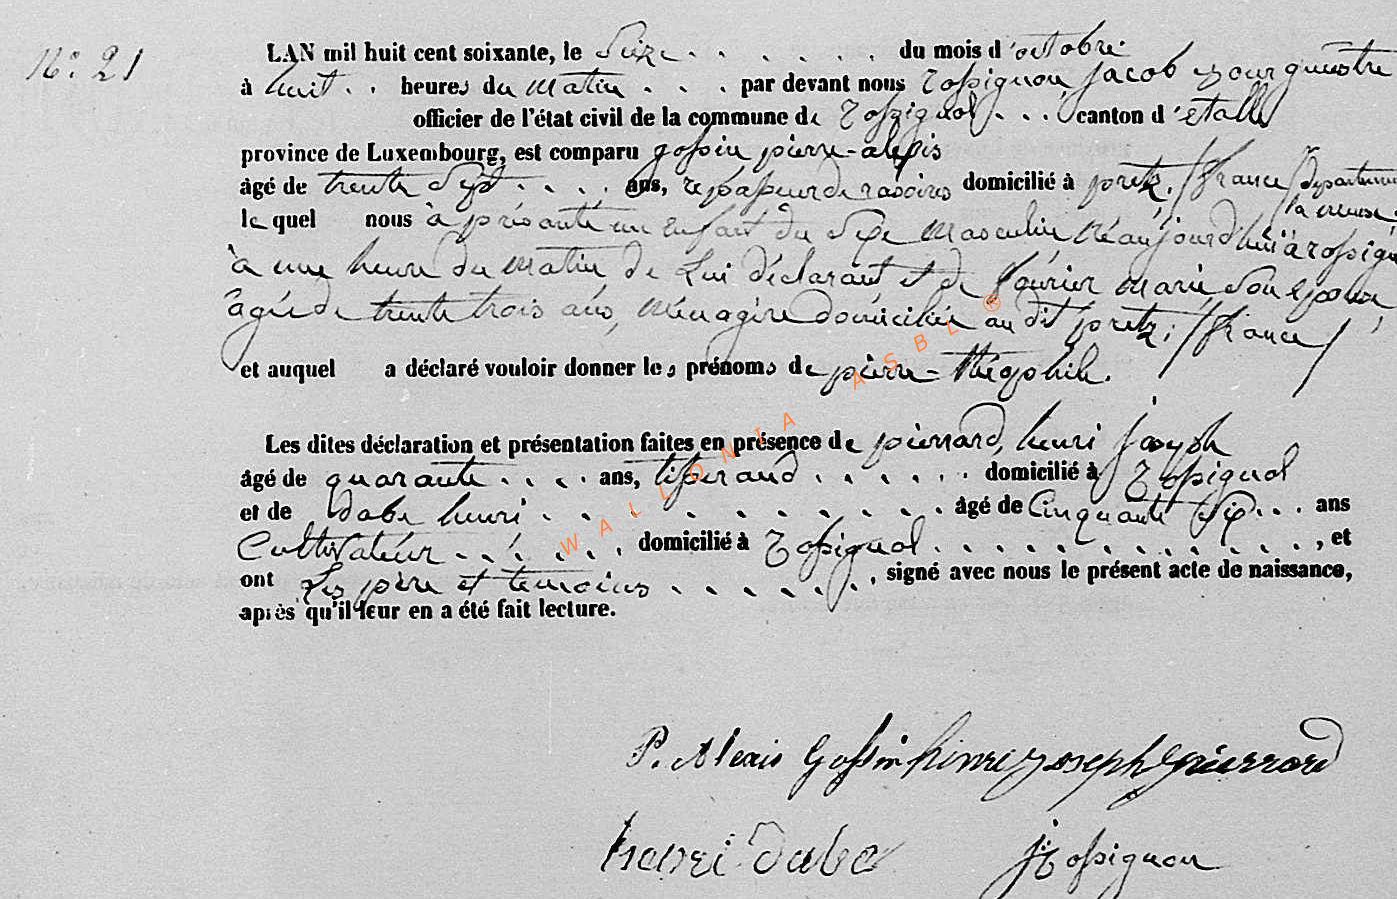 N° 21
LAN mil huit cent soixante, le Seize du mois d'octobre
à huit heures du matin par devant nous Rossignon, jacob bourguestre
officier de l'état civil de la commune de Rossignol canton d'étalle
province de Luxembourg, est comparu gossin pierre-alexis
âgé de trente Sept ans, repasseur de rasoires domicilié à pretz, / france / Département
la meuse
le quel nous à présenté un enfant du Sexe Masculin né aujourd'hui à rossignol
à une heure du Matin de Lui déclarant et de Marie Son épouse,
âgée de trente trois ans, Ménagère domiciliée au dit pretz, / france /
et auquel a déclaré vouloir donner les prénoms de pierre-théophile.
Les dites déclaration et présentation faites en présence de pierrard, henri joseph
âgé de quarante ans, tisserand domicilié à Rossignol
et de dabe henri âgé de Cinquante Six ans
Cultivateur domicilié à Rossignol , et
ont Les père et temoins , signé avec nous le présent acte de naissance,
après qu'il leur en a été fait lecture.
P. Alexis Gossin henri joseph pierrard
henri dabe J Rossignon
WALLONIA ASBL ®